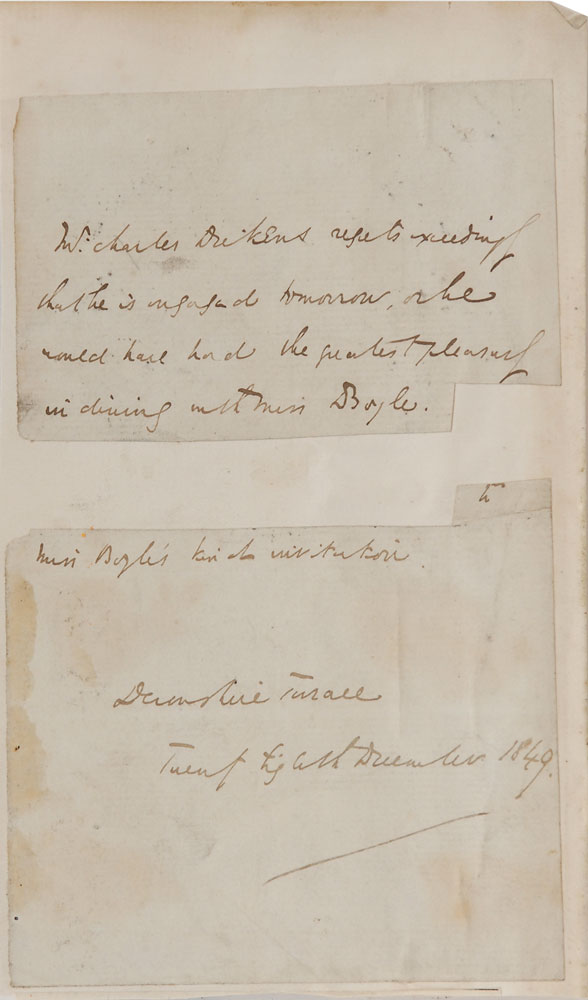 Mr. Charles Dickens regrets exceedingly
that he is engaged tomorrow, or he
would have had the greatest pleasure
in dining with Miss Boyle.
Miss Boyle's kind invitation.
Devonshire Terrace
Twenty Eighth December 1849.